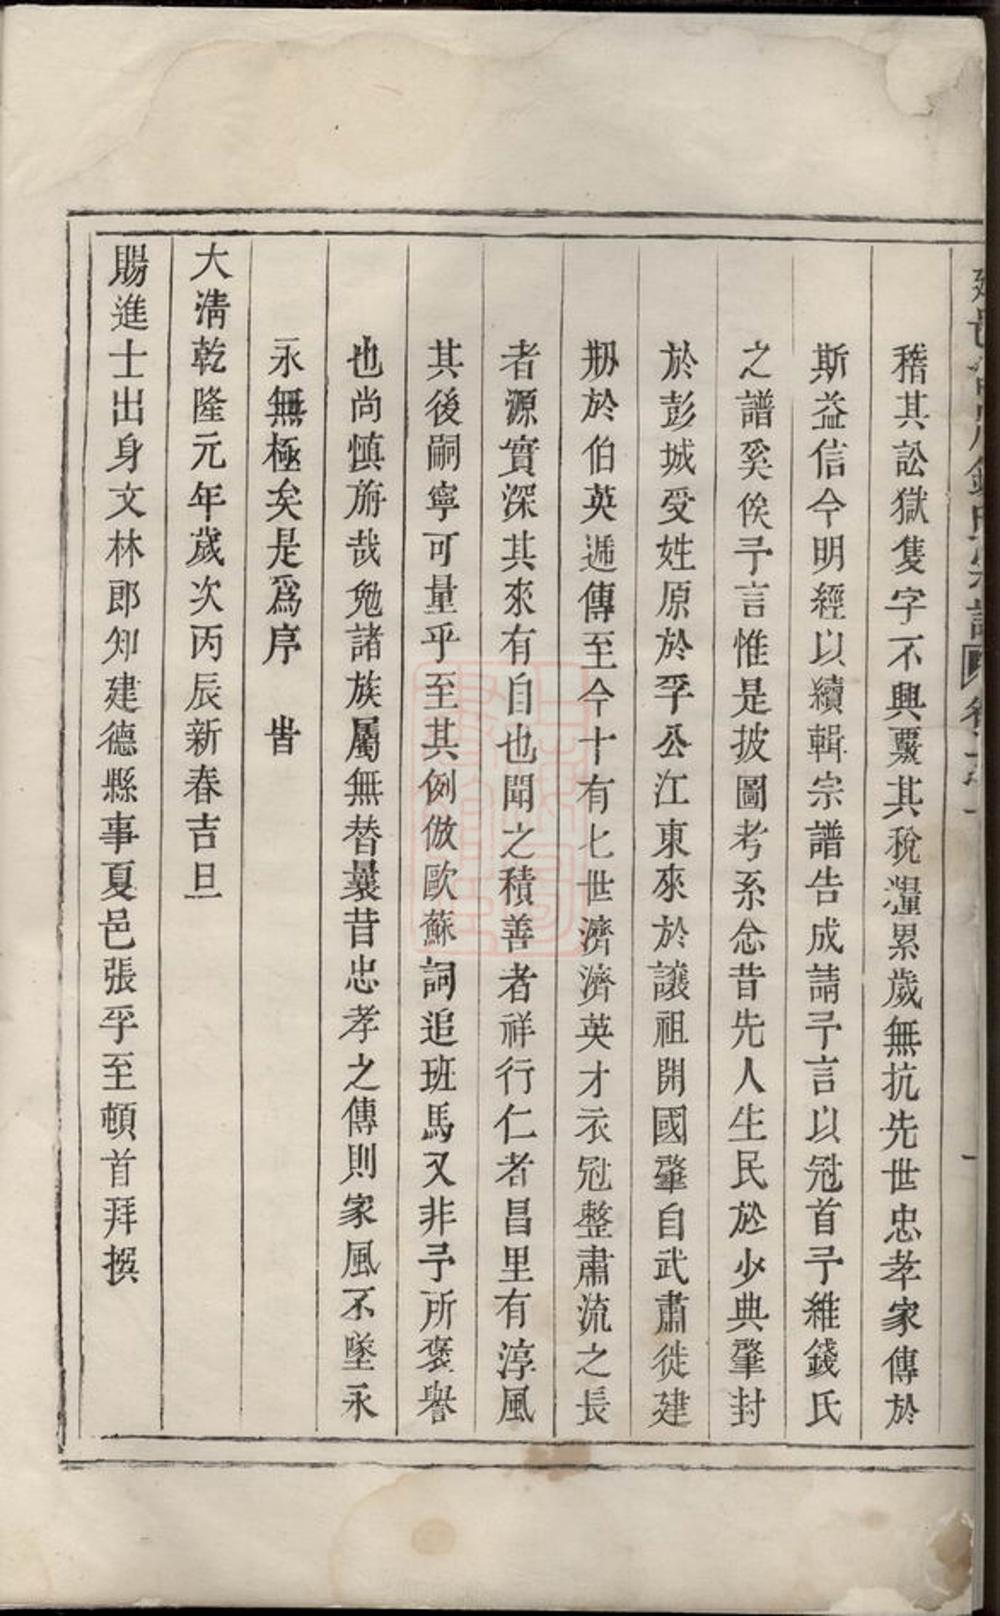 稽其訟獄隻字不興覈其稅糧累歲無抗先世忠孝家傳於
斯益信今明經以續輯宗譜告成請予言以冠首予維錢氏
之譜奚俟予言惟是披圖考系念昔先人生民於少典肇封
於彭城受姓原於孚公江東來於讓祖開國肇自武肅徙建
刱於伯英遞傳至今十有七世濟濟英才衣冠整肅流之長
者源實深其來有自也聞之積善者祥行仁者昌里有淳風
其後嗣寧可量乎至其例倣歐蘇詞追班馬又非予所褒譽
也尚慎旃哉勉諸族屬無替曩昔忠孝之傳則家風不墜永
永無極矣是爲序 旹
大淸乾隆元年歲次丙辰新春吉旦
賜進士出身文林郎知建德縣事夏邑張孚至頓首拜撰